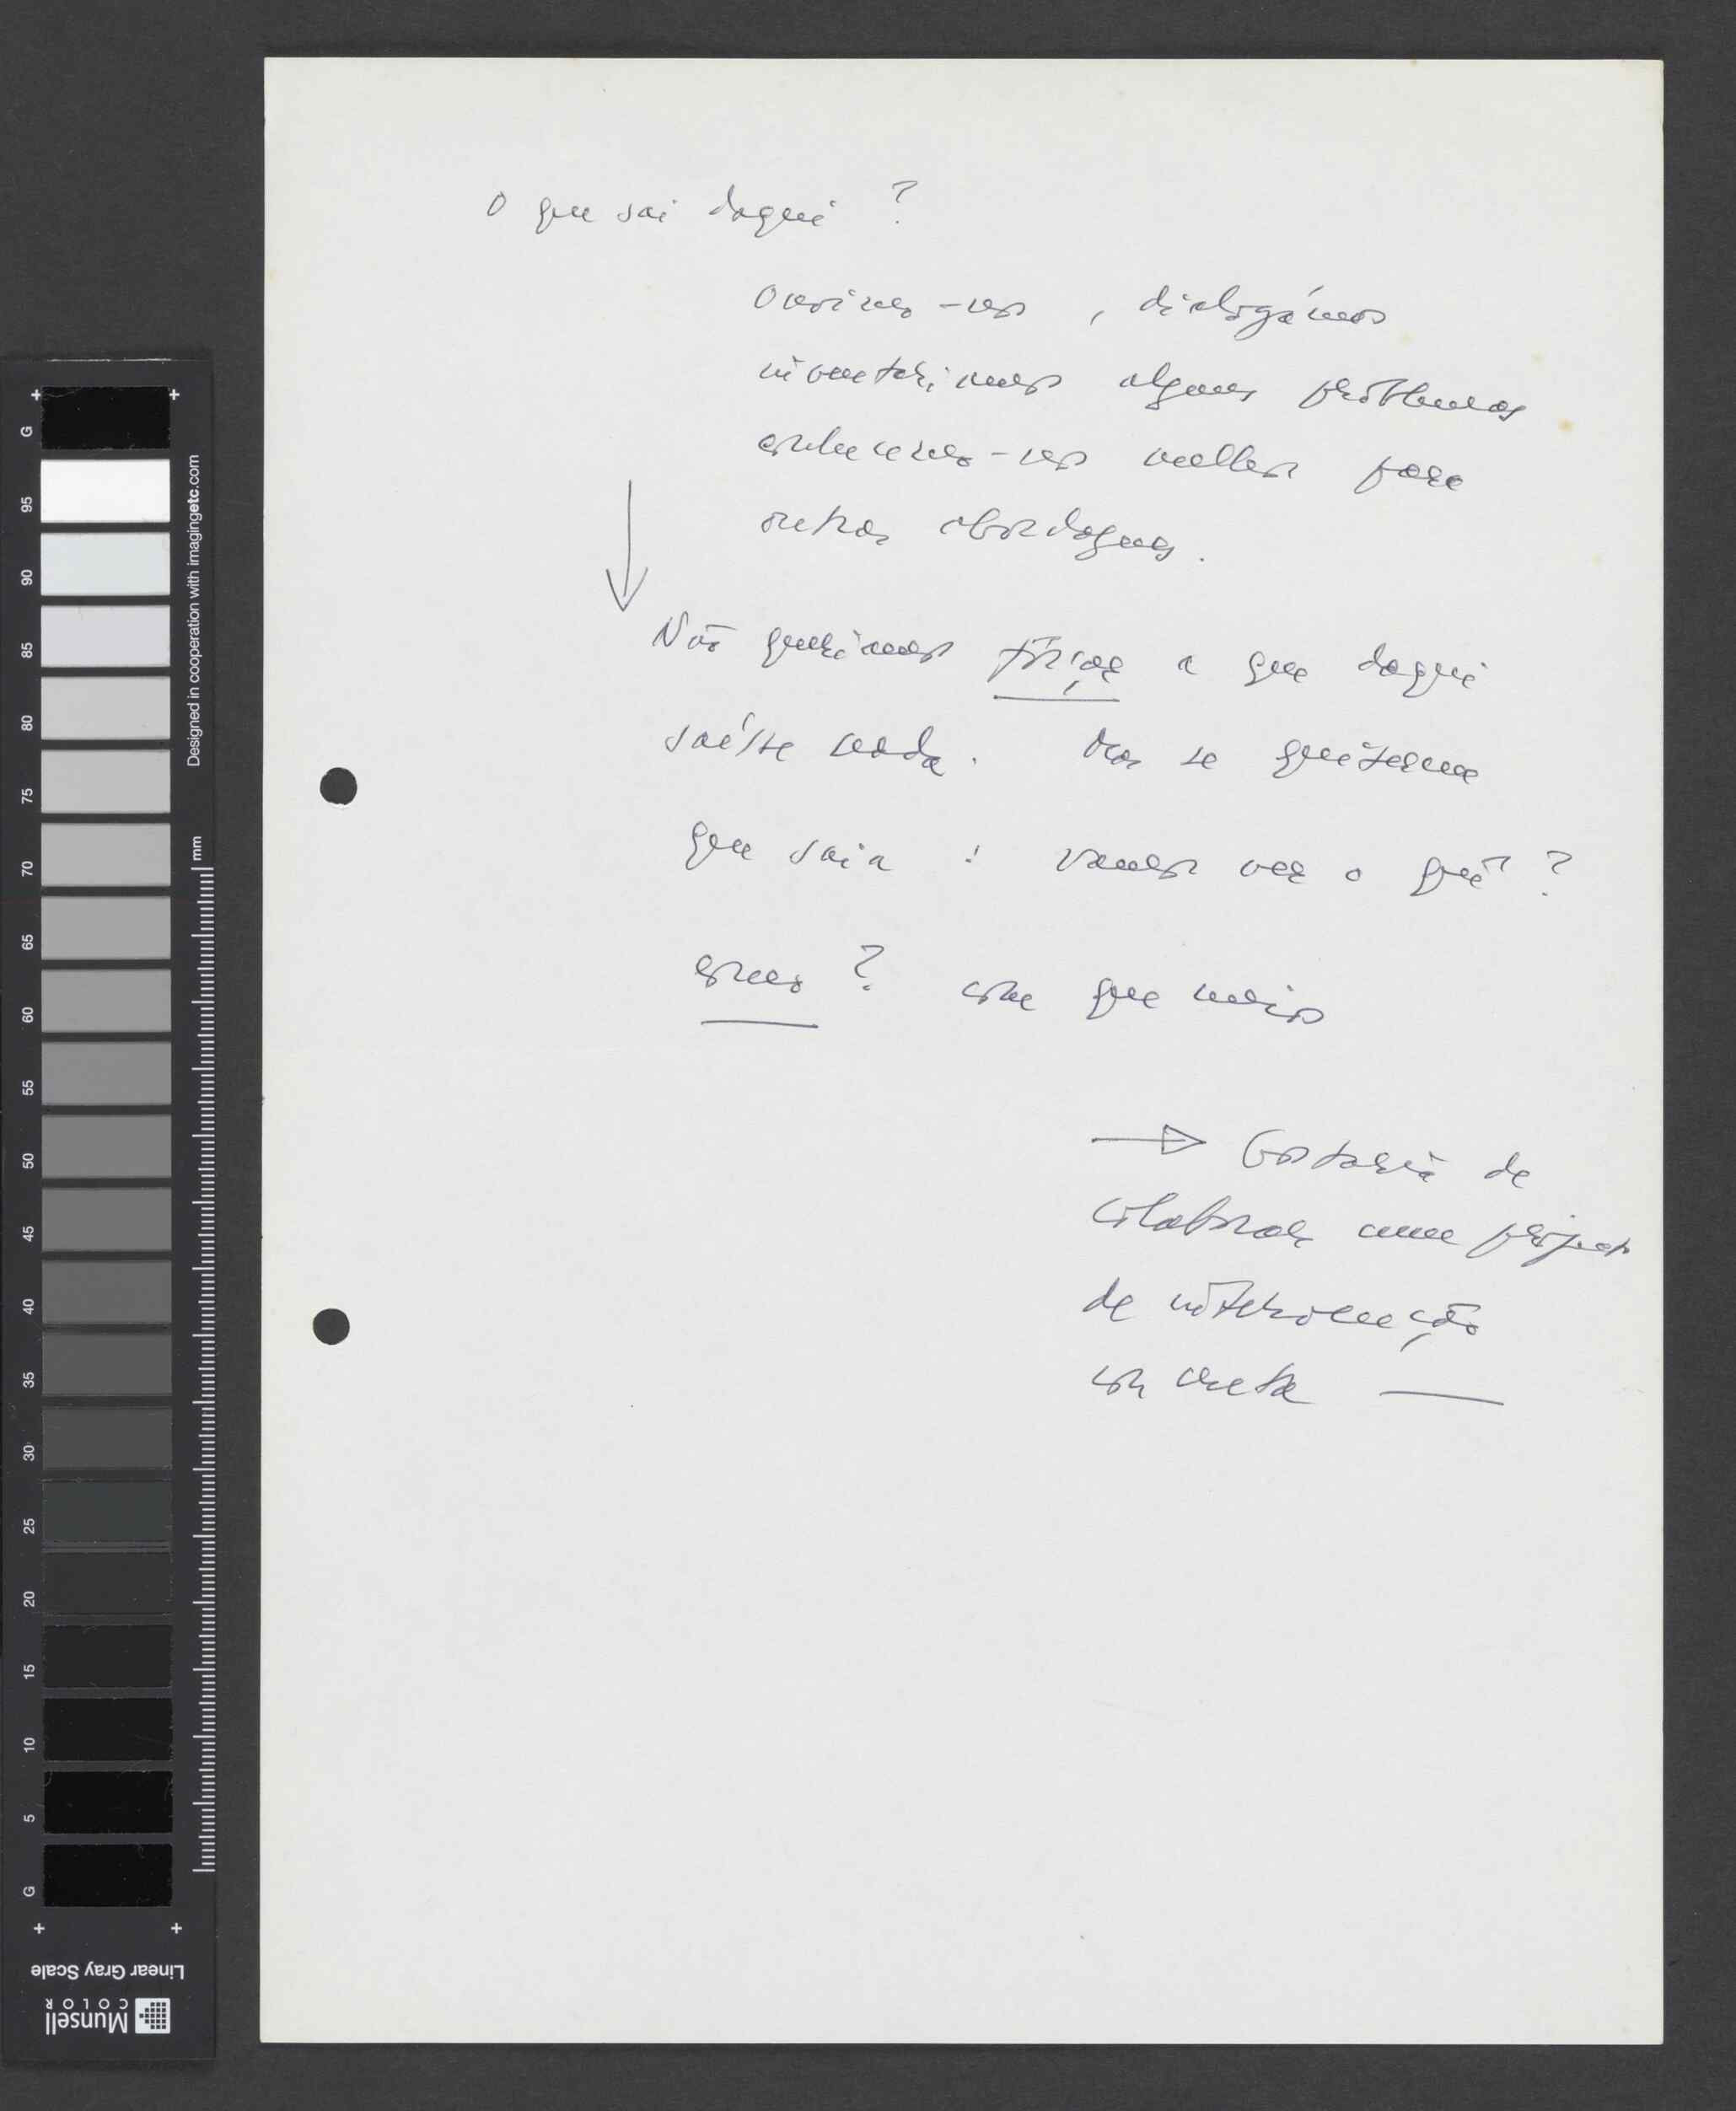 O que sai daqui ?
Ouvimos-nos , dialogámos
inventariamos alguns problemas
conhecemos-nos melhor para
outras abordagens .
Não queríamos forçar a que daqui
saísse nada . Mas se quiserem
que saia : vamos ver o quê ?
como ? com que meios
Gostaria de
colaborar num projecto
de intervenção
concreta —
G 95 90 85 80 75 70 65 60 55 50 45 40 35 30 25 20 15 10 5 G
Designed in cooperation with imagingetc.com
mm
Linear Gray Scale
Munsell
COLOR